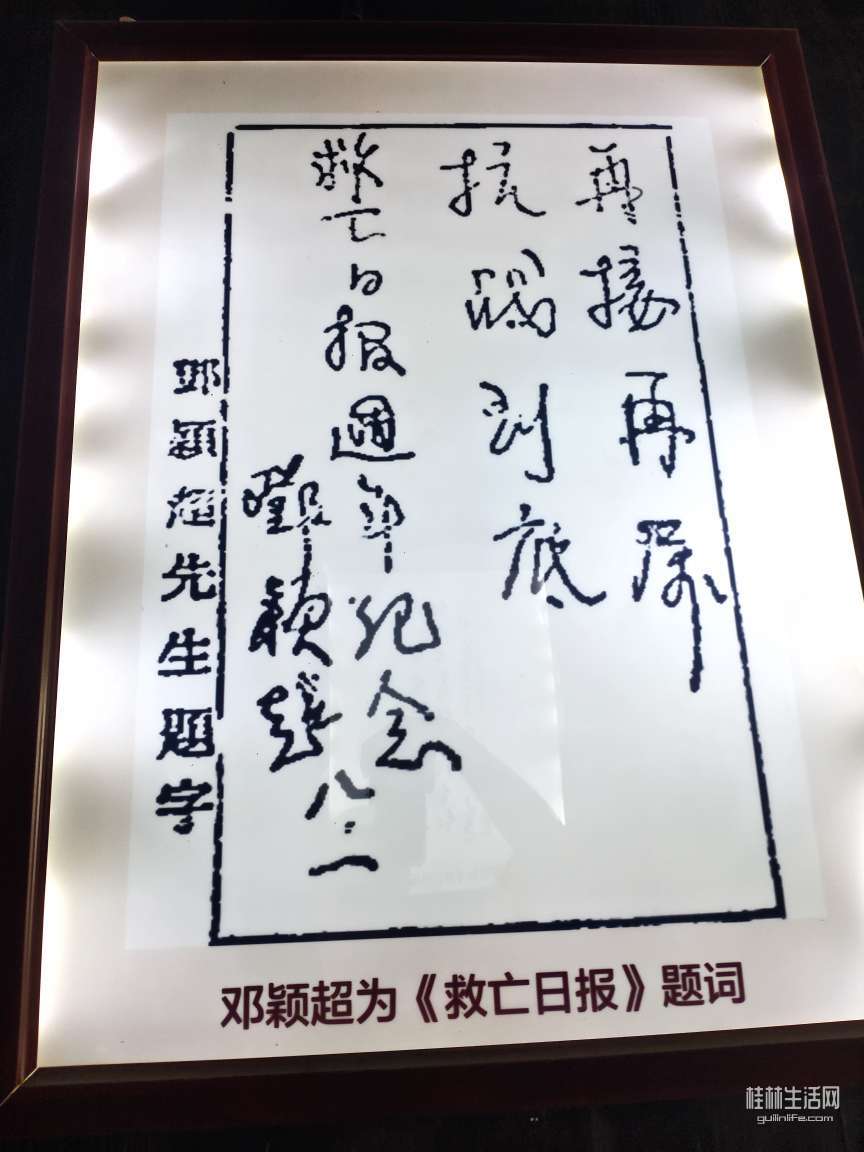 再接再厉
抗到底
救亡日报週年纪念
鄧颖超 八·一
邓颖超先生题字
邓颖超为《救亡日报》题词
桂林生活网
guilinlife.com